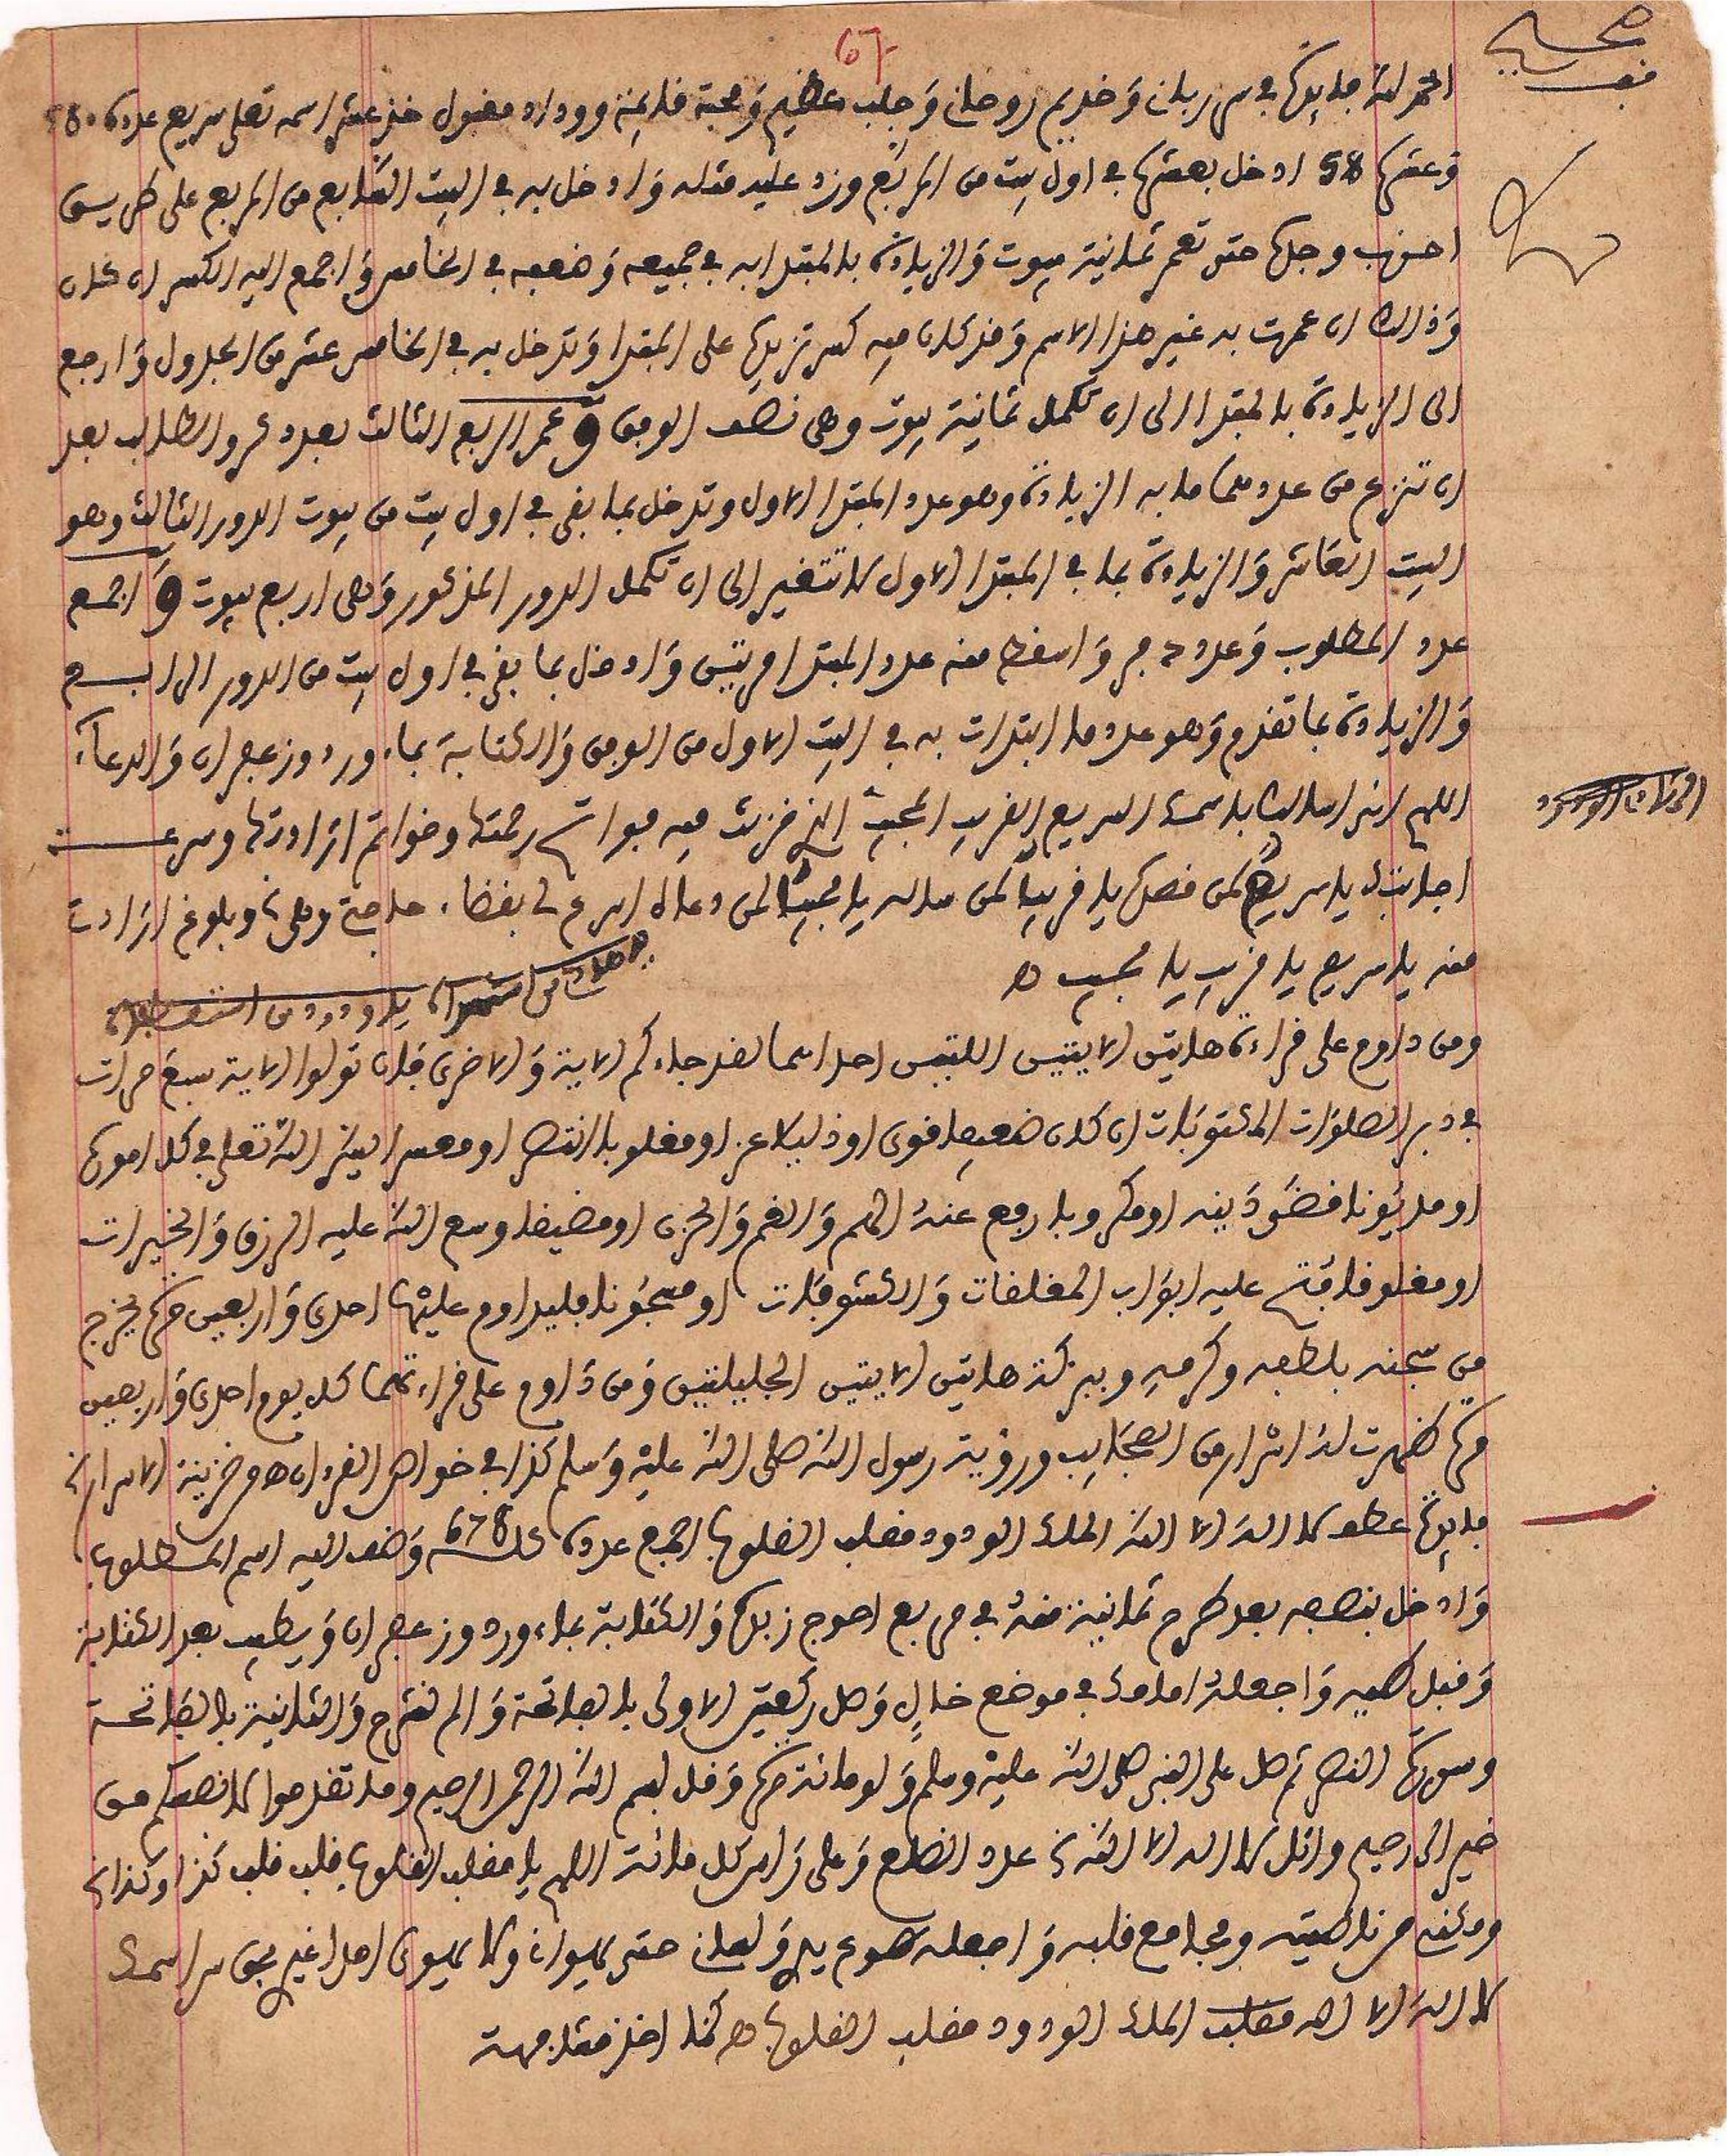 67
صحيح
الحمد لله فايدة في سر رباني وخديم روحاني وجلب عظيم ومحبة قايمة ووداد مقبول خذ عشر اسمه تعلى سريع عدده 580
وعشرها 58 ادخل بعشرها في اول بيت من المربع وزد عليه مثله وادخل به في البيت السابع من المربع على طريق
احزب وجلها حتى تعمر ثمانية بيوت والزيادة بالمبتدا به في جميعه وضعه في الخامس واجمع اليه الكسر ان كان
وذالك ان عمرت به غير هذا الاسم وقد كان فيه كسر تزيده على المبتدا وتدخل به في الخامس عشر من الجدول وارجع
الى الزيادة بالمبتدا الى ان تكمل ثمانية بيوت وهي نصف الوفق وعمر الربع الثالث بعدد حروف الطالب بعد
ان تنزع من عدد ما به الزيادة وهو عدد المبتدا الاول وتدخل بما بقى في اول بيت من بيوت الدور الثالث وهو
البيت العاشر والزيادة بما في المبتدا الاول لا تتغير الى ان تكمل الدور المذكور وهي اربع بيوت واجمع
عدد المطلوب وعدد واسقط منه عدد المبتدا مرتين وادخل بما بقي في اول بيت من الدور الرابع
والزيادة بما تقدم وهو عدد ما ابتدات به في البيت الاول من الوفق والكتابة بماء ورد وزعفران والدعاء
اللهم اني اسالك باسمك السريع القريب المجيب الذي خزنت فيه فواتح رحمتك وخواتم ارادتك وسرعة
اجابتك يا سريع لمن قصدك يا قريب لمن سالك يا مجيب لمن دعاك اسرع لي بقضاء حاجتي وبلوغ ارادتي
منه يا سريع يا قريب يا مجيب هـ
ومن داوم على قراءة هاتين الايتين اللتين احداهما لقد جاءكم الاية والاخرى فان تولوا الاية سبع مرات
في دبر الصلوات المكتوبات ان كان ضعيفا قوى او ذليلا عز او مغلوبا انتصر او معسرا ايسر الله تعلى في كل اموره
او مديونا قضى دينه او مكروبا رفع عنه الهم والغم والحزن او مضيقا وسع الله عليه الرزق والخيرات
او مغلوقا فتح عليه ابواب المغلقات والكشوفات او مسجونا فليداوم عليها احدى واربعين مرة يخرج
من سجنه بلطفه وكرمه وببركة هاتين الايتين الجليلتين ومن داوم على قراءتهما كل يوم احدى واربعين
مرة ظهرت له اسرار من العجايب ورؤية رسول الله صلى الله عليه وسلم كذا في خواص القرءان هـ من خزينة الاسرار
فايدة عطف لا اله الا الله الملك الودود مقلب القلوب اجمع عدده 678 وضف اليه اسم المطلوب
وادخل بنصفه بعد طرح ثمانية منه في مربع احوج زبدك والكتابة بماء ورد وزعفران ويطيب بعد الكتابة
وقبل طيه واجعله امامك في موضع خال وصل ركعتين الاولى بالفاتحة والم نشرح والثانية بالفاتحة
وسورة النصر ثم صل على النبي صلى الله عليه وسلم ولو مائة مرة وقل بسم الله الرحمن الرحيم وما تقدموا لانفسكم من
خير الى رحيم واتل لا اله الا الله عدد الطالع وعلى راس كل مائة اللهم يا مقلب القلوب قلب قلب كذا وكذا
ومكني من ناصيته ومجامع قلبه واجعله طوع يدي ولساني حتى يهواني ولا يهوى احدا غيري بحق سر اسمك
لا اله الا الله الملك الودود مقلب القلوب هـ